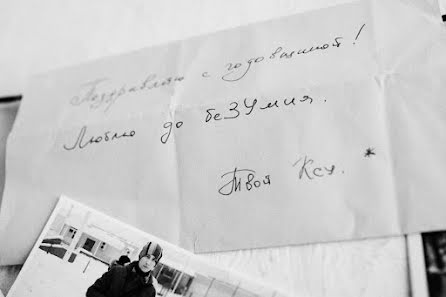 Поздравляю с годовщиной!
Люблю до беЗУмия.
Твой Ксу.*